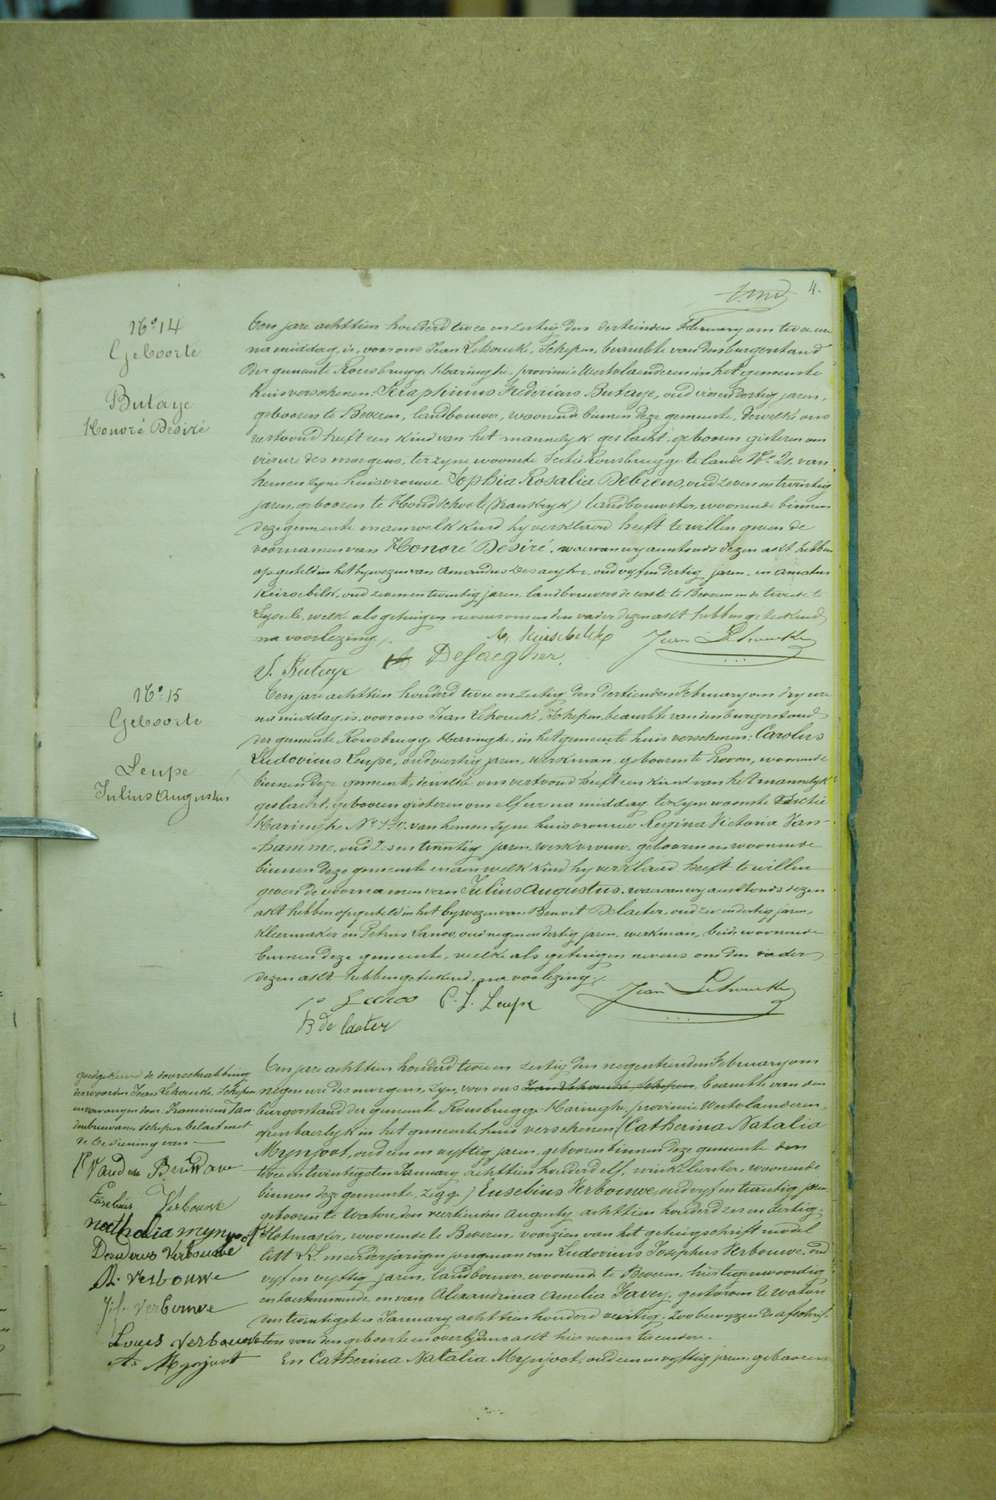 4.
N.º 14
Geboorte
Butaye
Honoré Désiré
Ten jare achttien honderd twee en zestig den dertienden february om twee ure
na middag, is, voor ons Jean Lehoucke, Schepen, beambte van den burgerstand
der gemeente Rousbrugge Haringhe, provincie Westvlaanderen in het gemeente
huis verschenen: Seraphinus Federicus Butaye, oud vier en dertig jaren,
geboren te Beveren, landbouwer, woonende binnen deze gemeente, dewelke ons
vertoond heeft een kind van het mannelyk geslacht, geboren gisteren om
vier ure des morgens, ter zyne woonste Sectie Rousbrugge te lande N.º 21. van
hem en zyne huisvrouwe Sophia Rosalia Debreus, oud zeven en twintig
jaren, geboren te Hondschoot (Frankryk) landbouwster, woonende binnen
deze gemeente en aen welk kind hy verklaerd heeft te willen geven de
voornamen van Honoré Désiré. waervan wy aenstonds dezen akt hebben
opgesteld in het bywezen van Amandus Desaegher, oud vyf en dertig jaren, en Amatus
Kerssebilk, oud zeven en twintig jaren, landbouwers de eerste te Beveren en de tweede te
Leysele, welk als getuigen nevens ons en den vader dezen akt hebben geteekend
na voorlezing.
S. Butaye
Desaegher
Jean Lehoucke
N.º 15
Geboorte
Leupe
Julius Augustus
Ten jare achttien honderd twee en zestig den dertienden february om dry ure
na middag, is, voor ons Jean Lehoucke, Schepen, beambte van den burgerstand
der gemeente Rousbrugge Haringhe, in het gemeente huis verschenen: Carolus
Ludovicus Leupe, oud veertig jaren, werkman, geboren te Proven, woonende
binnen deze gemeente, dewelke ons vertoond heeft een kind van het mannelyk
geslacht, geboren gisteren om elf ure na middag ter zyne woonste Sectie
Haringhe N.º 130. van hem en zyne huisvrouwe Regina Victoria Van-
hamme, oud en twintig jaren, werkvrouw, geboren en woonende
binnen deze gemeente en aen welk kind hy verklaerd heeft te willen
geven de voornamen van Julius Augustus, waervan wy aenstonds dezen
akt hebben opgesteld in het bywezen van Benoit Delaeter, oud en dertig jaren,
kleermaker en Petrus Sanoo, oud negen en dertig jaren, werkman, beide woonende
binnen deze gemeente, welke als getuigen nevens ons den vader
dezen akt hebben geteekend, na voorlezing.
C. L. Leupe
Jean Lehoucke
B de laeter
goedgekeurd de doorschrabbing
der woorden Jean Lehoucke Schepen
en vervangen door Francscus Van
denbrouwe, schepen belast met
de bediening van
Eusebius Verbouwe
nathalia mynjoot
Verbouwe
Verbouwe
Verbouwe
Louis Verbouwe
A. Mynjoot
Ten jare achttien honderd twee en zestig den negentienden february om
negen ure des morgens, zyn, voor ons Jean Lehoucke Schepen, beambte van den
burgerstand der gemeente Rousbrugge Haringhe, provincie Westvlaanderen,
openbaerlyk in het gemeente huis verschenen (Catherina Natalia
Mynjoot, oud een en vyftig jaren, geboren binnen deze gemeente den
twee en twintigsten January achttien honderd elf, winkelierster, woonende
binnen deze gemeente, zegge) Eusebius Verbouwe, oud vyf en twintig jaren
geboren te Watou, den veertienden Augusty achttien honderd zes en dertig,
Klokmaker, woonende te Beveren, voorzien van het getuigschrift model
litt. meerderjarigen jongman van Ludovicus Josephus Verbouwe, oud
vyf en vyftig jaren, landbouwer, woonende te Beveren, hier tegenwoordig
en toestemmende, en van Alexandrina Amelia Favey, gestorven te Watou
en twintigsten January achttien honderd veertig. Zoo bewyzen de afschrif-
ten van den geboorte en overlydens akt hier nevens
En Catherina Natalia Mynjoot, oud een en vyftig jaren, geboren